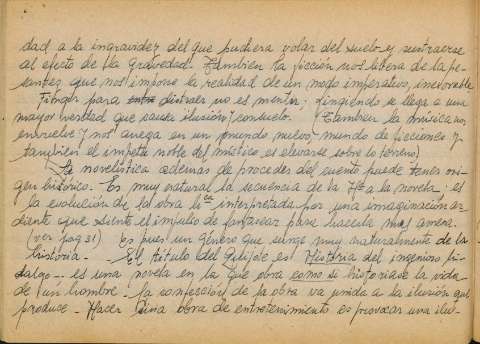 dad a la ingravidez del que pudiera volar del suelo y sustraerse
al efecto de la gravedad. Tambien la ficción nos libera de la pe-
santez que nos impone la realidad de un modo imperativo, inexorable
Fingir para distraer no es mentir; fingiendo se llega a una
mayor verdad que causa ilusión y consuelo. (Tambien la musica nos
envuelve y nos anega en un mundo nuevo - mundo de ficciones y
tambien el impetu noble del mistico es elevarse sobre lo terreno)
La novelistica ademas de proceder del cuento puede tener ori-
gen histórico. Es muy natural la secuencia de la Hª a la novela; es
la evolución de la obra hca interpretada por una imaginación ar-
diente que siente el impulso de fantasear para hacerla mas amena.
(ver pag 31) Es pues un género que surge muy naturalmente de la
historia. - El titulo del Quijote es Historia del ingenioso hi-
dalgo - es una novela en la que obra como si historiase la vida
de un hombre. - La confección de la obra va unida a la ilusión que
produce. - Hacer una obra de entretenimiento es provocar una ilu-